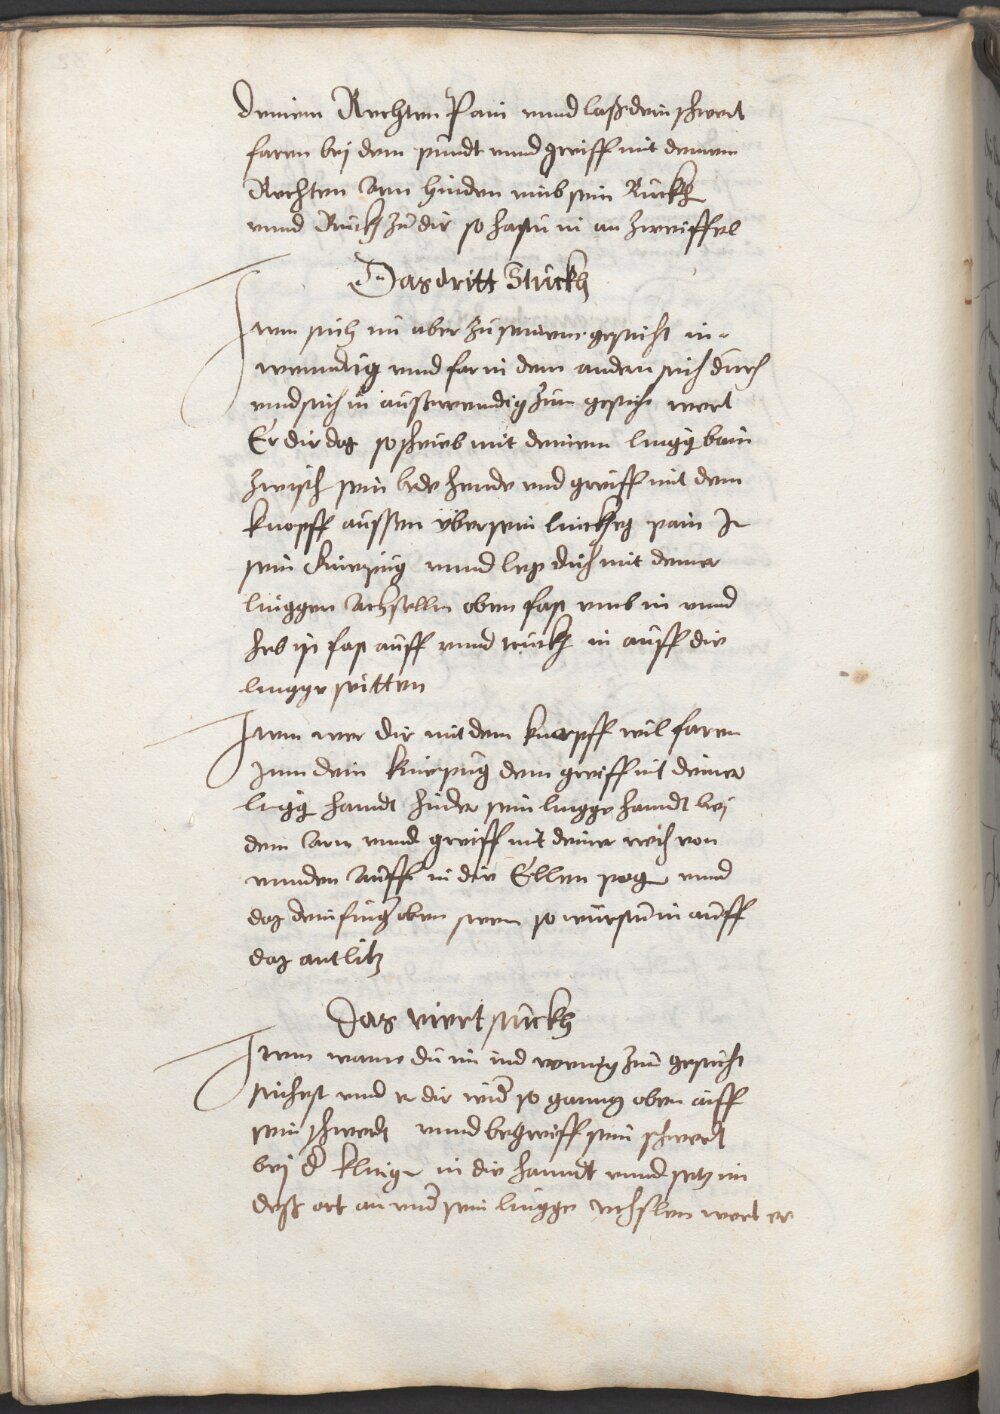 deinem Rechten Pain unnd laß dein schwert
faren bej dem pundt unnd greiff mit deinem
Rechten Arm hinden umb sein Rückh
unnd Ruckh zu dir so hastu in an zweiffel
Das dritt Stuckh
Item stich im aber zu seinem gesicht in=
wenndig unnd far in dem andern stich durch
und stich in außwendig zum gesicht wert
Er dir das so schreib mit deinem lingg bain
zwisch sein bede hende und greiff mit dem
knopff aussen yber sein linckhes pain In
sein kniepüg unnd leg dich mit deiner
linggen Achsellen oben fast umb in unnd
heb in fast auff unnd ruckh in auff die
lingge seitten
Item wer dir mit dem knopff wil faren
Inn dein kniepug dem greiff mit deiner
lingg hanndt hinder sein lingge hanndt bej
dem Arm unnd greiff mit deiner rech von
unnden Auff in die Ellen pog unnd
das dein fing oben seien so würfstu in auff
das antlitz
Das viert stuckh
Item wann du im ind wenig zum gesicht
stichest unnd er dir wid so gannz oben auff
sein schwerdt unnd begreiff sein schwerdt
bej d klinge in die hanndt unnd setz im
deß ort an und sein lingge uchslen wert er